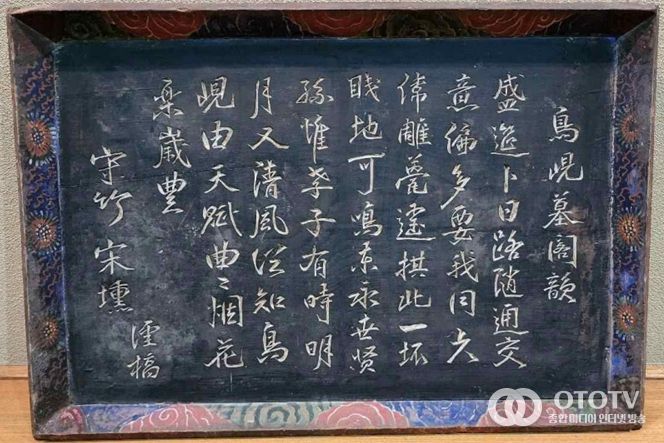 鳥峴墓閣韻
盛筵卜日路隨通交
意偏多要我同六
偉雕甍遽拱此一坏
賤地可鳴東永世賢
孫惟孝子有時明
月又淸風從知鳥
峴由天賦曲〻烟花
樂歲豊
守竹宋壎
謹稿
OTOTV
종합미디어 인터넷방송